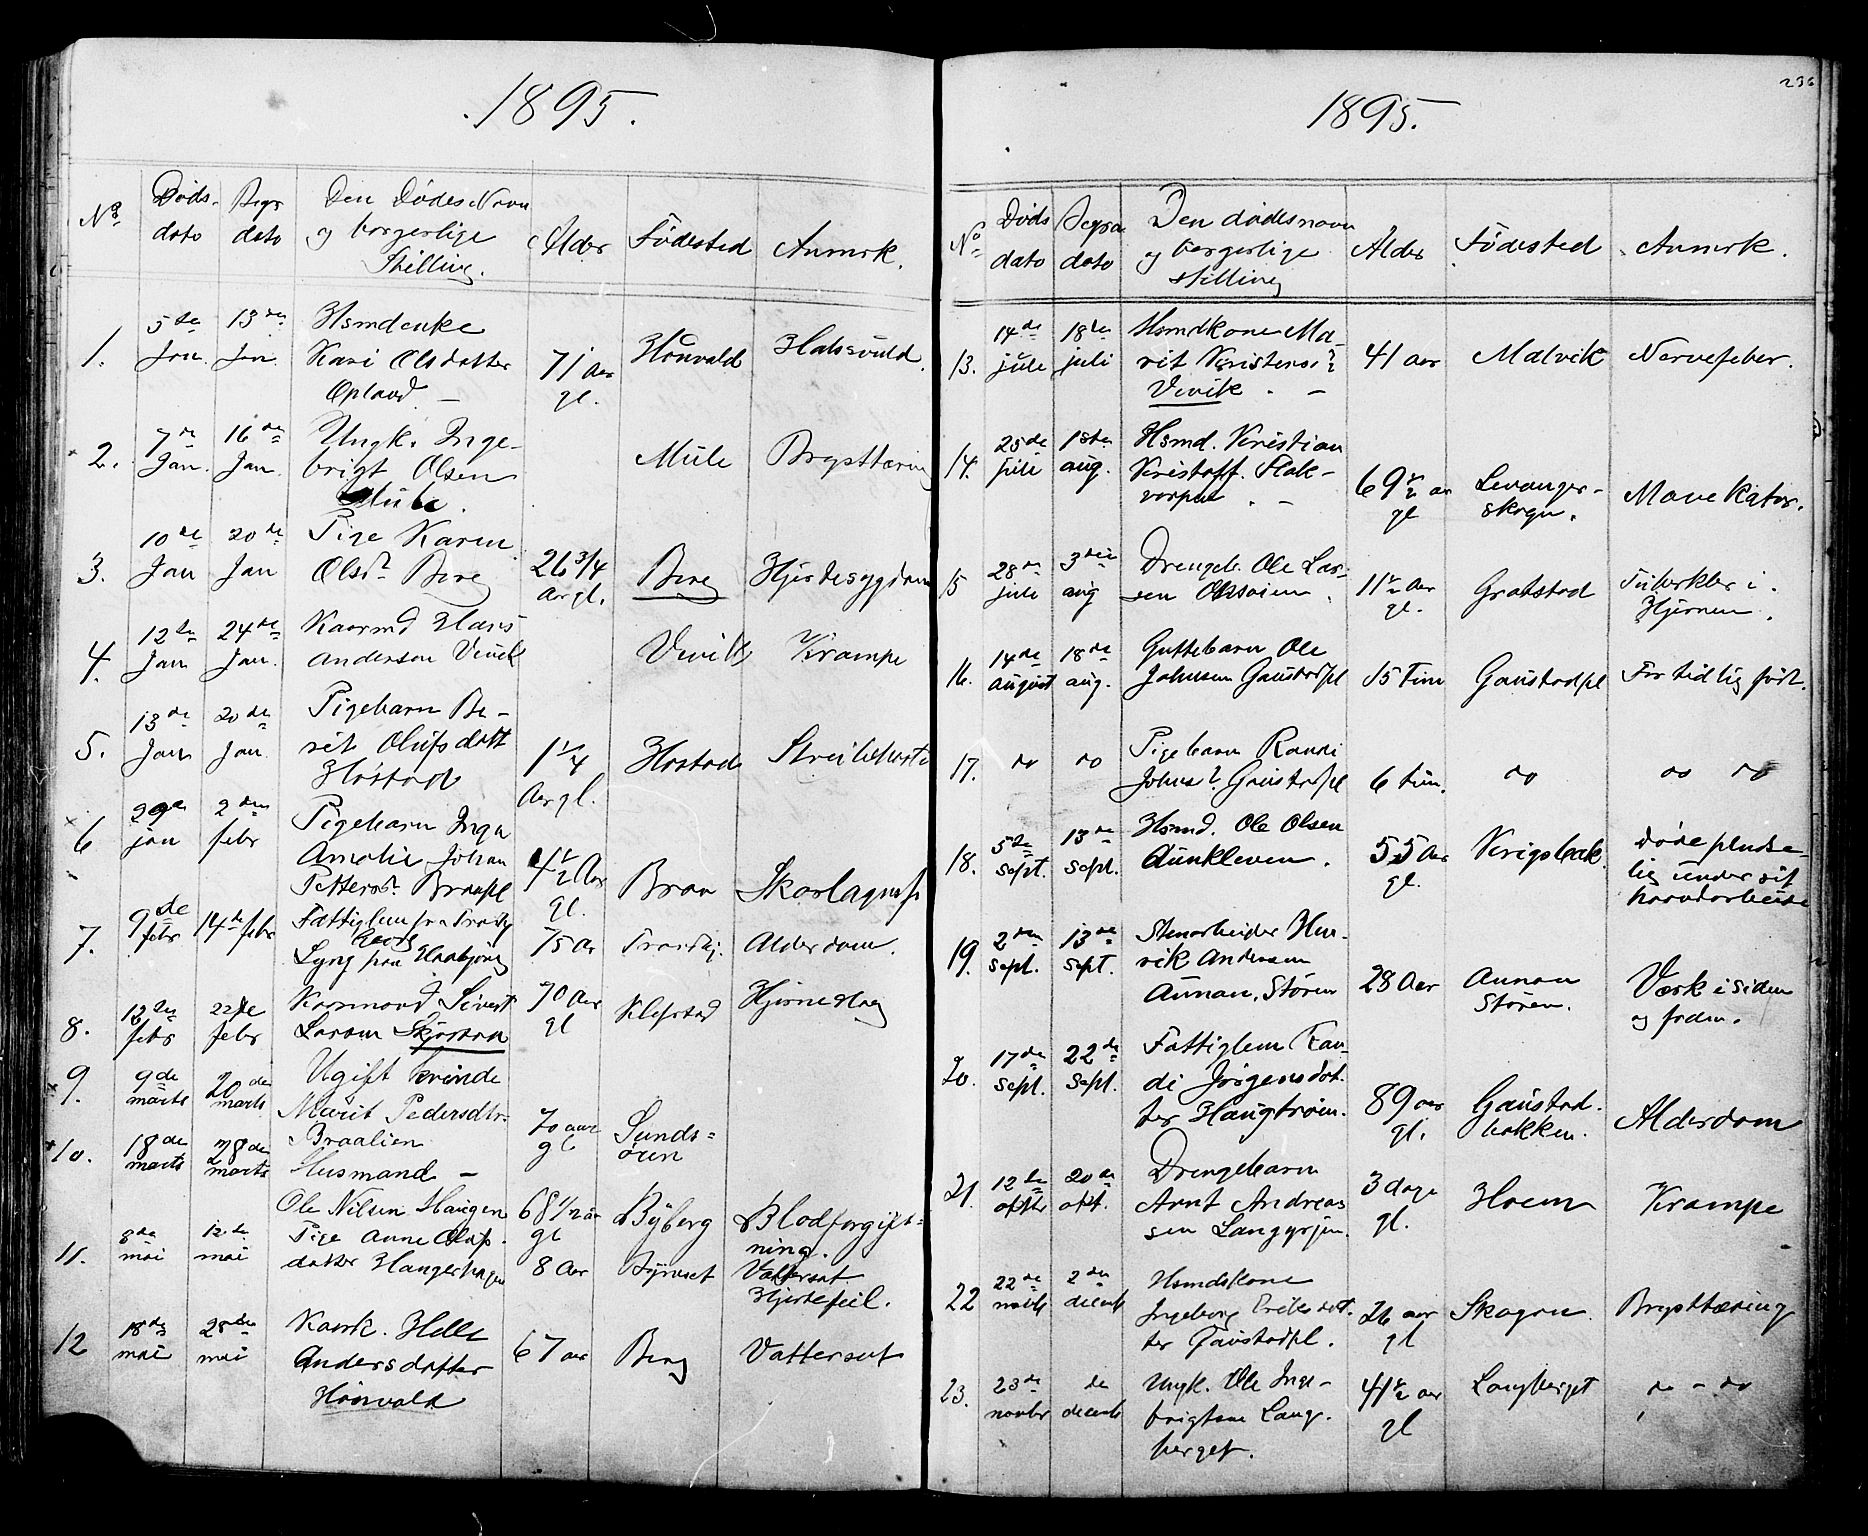 1895.
No Døds- dato Begr dato Den Dødes Navn og borgerlige Stilling. Alder Fødested Anmerk.
1. 5te Jan. 13de Jan. Hsmdenke
Kari Olsdatter 71 Aar gl. Hønvald Halsevuld.
Opland. —
2. 7de Jan. 16de Jan. Ungk. Inge-
brigt Olsen Mule Brysttæring
Mule.
3. 10de Jan 20de Jan Pige Karen
Olsdr Berg 26 3/4 Aar gl. Berg Hjertesygdom
4. 12te Jan 24de Jan. Kaarmd Hans
Anderson Vevik Vevik Krampe
5. 13de Jan 20de Jan. Pigebarn Be-
rit Olufsdatt 1 1/4 Aar gl. Hostad Strubehoste
Høstad
6 29de jan 2den febr Pigebarn Inga
Amalie Johan
Petters dr. Braapl 4 1/2 Aar gl. Braa Skarlagensf
7. 9de febr 14de febr Fattiglem fra Trondhj
Georg
Lyng paa Haabjørg 75 Aar Trondhj. Alderdom.
8. 12te febr 22de febr Kaarmand Sivert 70 Aar gl Klefstad Hjerneslag
Larsen Skjøstad
9. 9de marts 20de marts Ugift Kvinde
Marit Pedersdtr. 70 aar gl Sunds-
Braalien øren
10. 18de marts 28de marts Husmand —
Ole Nilsen Haugen 68 1/2 år gl Byberg Blodforgift-
ning.
11. 8de mai 12te mai Pige Anne Olufs-
datter Haugerhagen 8 Aar Byneset Vattersot
Hjertefeil.
12 18de mai 28de mai Kaark. Helle
Andersdatter 67 aar Berg Vattersot
Hønvald
236
1895.
No Døds dato Begra dato Den dødes navn og borgerlige stilling Alder Fødested Anmerk.
13. 14de jule 18de juli Hsmdkone Ma-
rit Kristensd. 41 aar Malvik Nervefeber.
Vevik. —
14. 25de juli 1ste aug. Hsmd. Kristian
Kristoff. Flak- 69 1/2 aar gl Levanger-
vorpet. — skogn. Mave Katar.
15 28de juli 3die aug Drengeb. Ole Lar-
sen Oksøien. 11 1/2 Aar gl. Grøtstad Tuberkler i
Hjernen.
16. 14de august 18de aug. Guttebarn Ole
Johnsen Gaustadpl 15 Tim Gaustadpl For tidlig født.
17. do do Pigebarn Randi
Johnsd. Gaustadpl 6 tim. do do do
18. 5te sept. 13de sept. Hsmd. Ole Olsen
Aunkleven. 55 Aar gl. døde pludse-
lig under sit
haandarbeide
19. 2den sept. 13de sept. Stenarbeider Hen-
rik Andersen
Aunan, Støren 28 Aar Aunan
Støren. Værk i siden
og foden.
20. 17de sept. 22de sept. Fattiglem Ran-
di Jørgensdat-
ter Haugtrøen. 89 aar gl. Gaustad-
bakken. Alderdom
21. 12te oktbr 20de okt. Drengebarn
Arnt Andreas- 3 dage gl. Hoem Krampe
sen Langørjan.
22 22de novb 2den decemb Hsmdskone
Ingeborg Eriksdat- 26 aar gl Skogan. Brysttæring
ter Gaustadpl.
23. 23de novbr do decemb Ungk. Ole Inge- 41 1/2 aar gl Langberget do - do
brigtsen Lang-
berget.